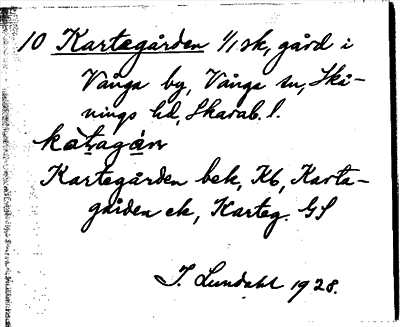 10 Kartegården 1/1 sk, gård i
Vånga by, Vånga sn, Skå-
nings hd, Skarab. l.
kàtagán
Kartegården bek, Kb, Karta-
gården ek, Karteg. GS
I. Lundahl 1928.